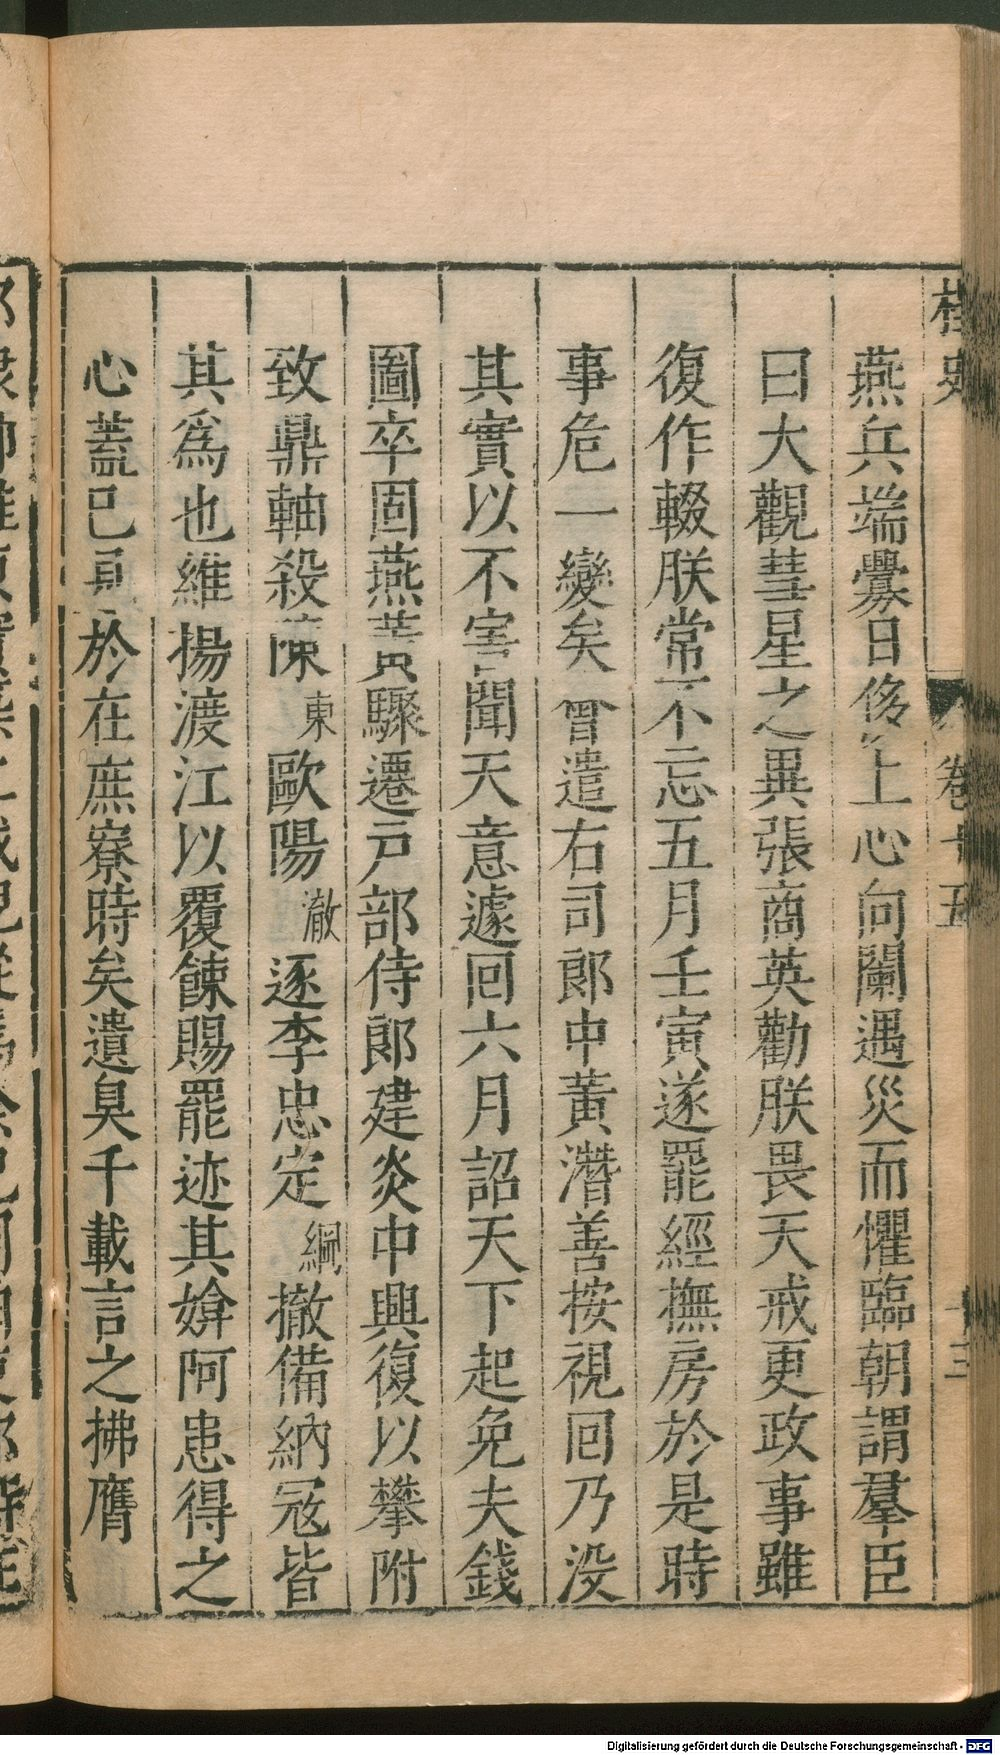 桯史
卷十五
十三
燕兵端釁日侈上心向闌遇災而懼臨朝謂羣臣
曰大觀彗星之異張商英勸朕畏天戒更政事雖
復作輟朕常不忘五月壬寅遂罷經撫房於是時
事危一變矣會遣右司郎中黃潛善按視回乃没
其實以不害聞天意遽回六月詔天下起免夫錢
圖卒固燕黃驟遷戸部侍郎建炎中興復以攀附
致鼎軸殺陳東歐陽澈逐李忠定綱撤備納冦皆
其爲也維揚渡江以覆餗賜罷迹其媕阿患得之
心蓋已具於在庶寮時矣遺臭千載言之拂膺
Digitalisierung gefördert durch die Deutsche Forschungsgemeinschaft - DFG